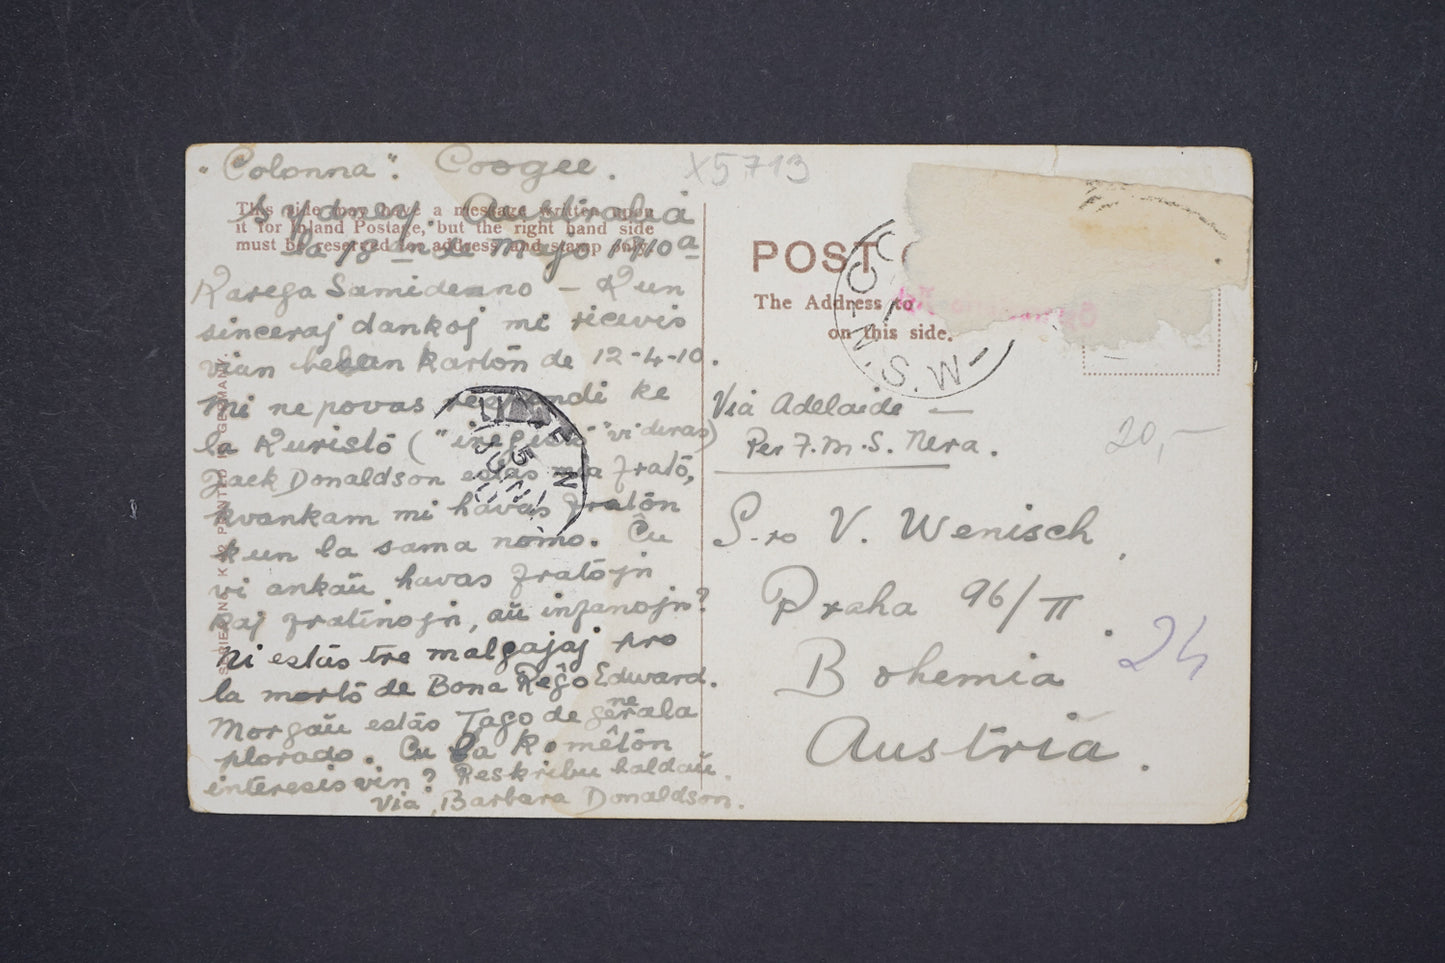 "Colonna". Coogee.
Sydney. Australia
la 19an de Majo 1910a
Karega Samideano – Kun
sinceraj dankoj mi ricevis
vian belan kartōn de 12-4-10.
Mi ne povas respondi ke
la Kuristō ("iregistō" vi diras)
Jack Donaldson estās mia fratō,
kvankam mi havas fratōn
kun la sama nōmo. Ĉu
vi ankāŭ havas fratōjn
kaj fratīnojn, aŭ infanojn?
Ni estās tre malgajaj pro
la mortō de Bona Reĝo Edward.
Morgāŭ estās Tago de generala
plorado. Ĉu la Komētōn
interesis vin? Reskribu baldaŭ.
Via, Barbara Donaldson.
This side may have a message written upon
it for Inland Postage, but the right hand side
must be reserved for address and stamp only.
PRINTED IN GERMANY
X5713
POST
The Address to
on this side.
N.S.W
Via Adelaide —
Per F.M.S. Nera.
20,-
S-ro V. Wenisch,
Praha 96/II.
Bohemia
Austria.
24